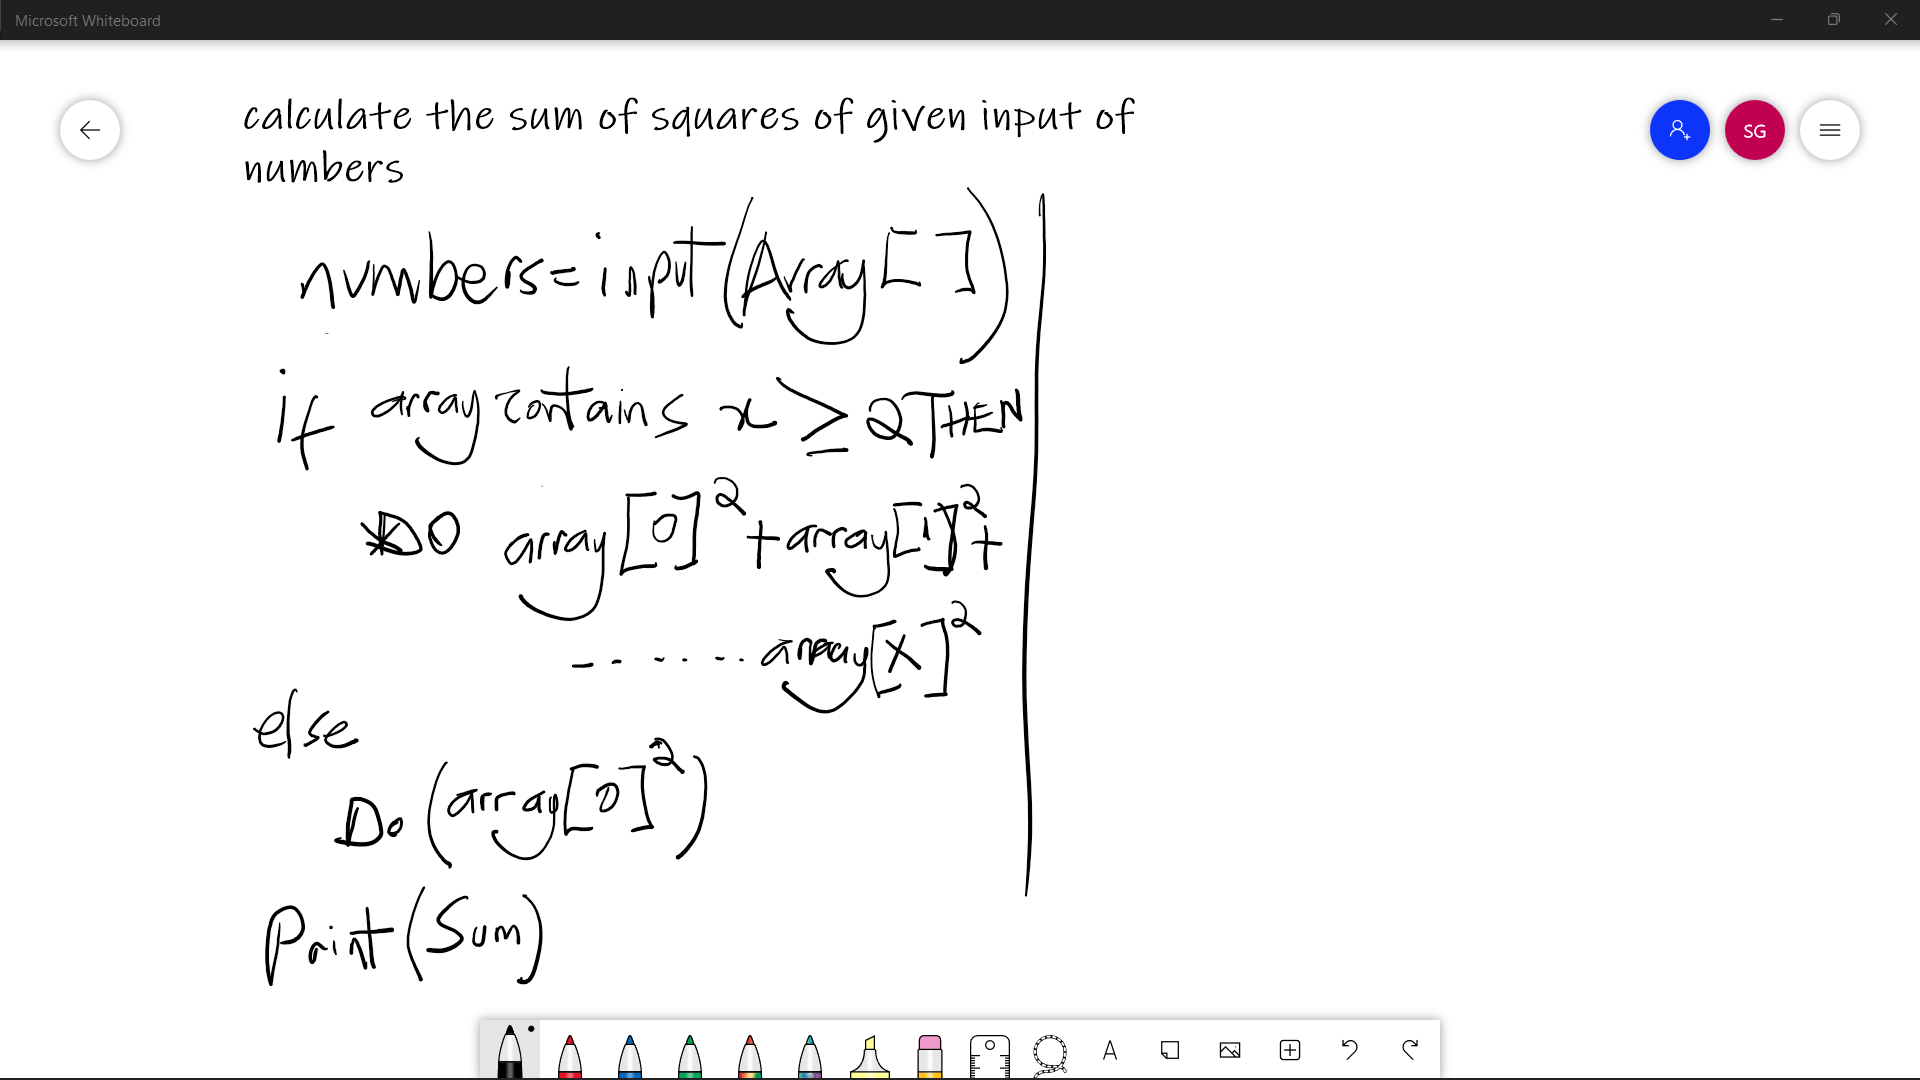 Microsoft Whiteboard
calculate the sum of squares of given input of
numbers
SG
numbers=input(Array[ ])
if array contains x ≥ 2 THEN
DO array[0]² + array[1]² +
- - . . . . . array[X]²
else
Do (array[0]²)
Print(Sum)
A